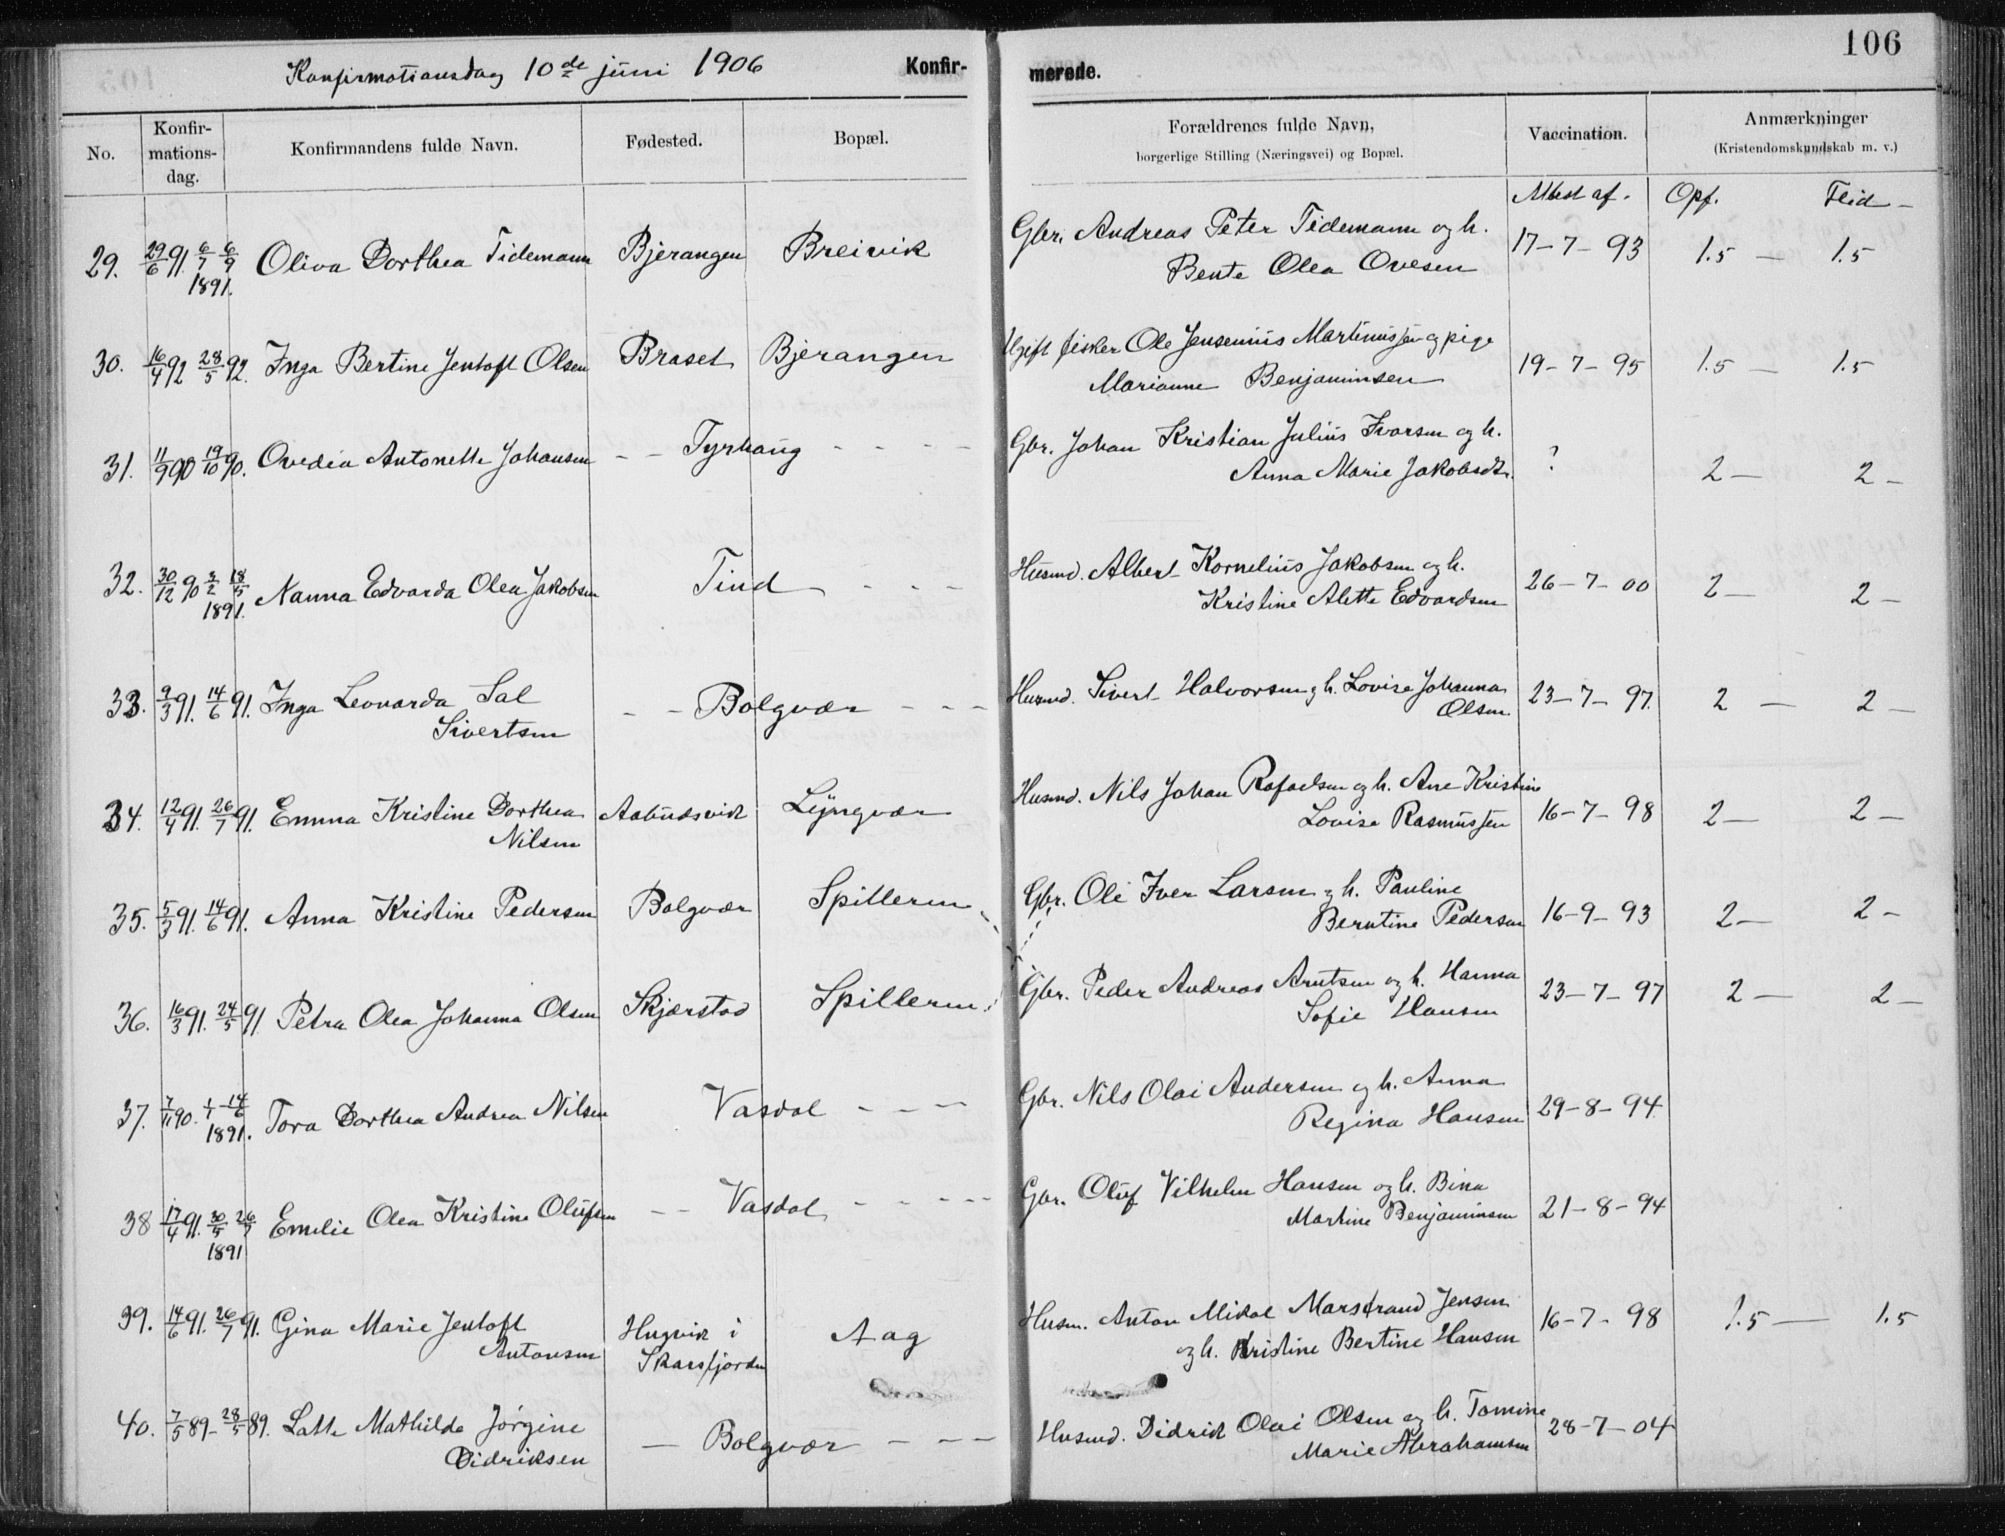 Konfirmationsdag 10de juni 1906 Konfir- merede. 106
No. Konfir-mations-dag. Konfirmandens fulde Navn. Fødested. Bopæl. Forældrenes fulde Navn, Vaccination. Anmærkninger
borgerlige Stilling (Næringsvei) og Bopæl. (Kristendomskundskab m. v.)
Attest af. Opf. Flid
29. 29/6 91 6/7 6/9 Oliva Dorthea Tidemann Bjerangen Breivik Gbr. Andreas Peter Tidemann og h. 17-7-93 1.5 — 1.5
1891. Bente Olea Ovesen
30. 16/4 92 28/5 92. Inga Bertine Jentoft Olsen Braset Bjerangen Ugift fisker Ole Jensenius Martinussen og pige 19-7-95 1.5 — 1.5
Marianne Benjaminsen
31. 11/9 90 19/10 90. Ovedia Antonette Johansen - - Tyrhaug - - - - Gbr. Johan Kristian Julius Ivarsen og h. ? 2 — 2 —
Anna Marie Jakobsdtr.
32. 30/12 90 3/2 18/5 Nanna Edvarda Olea Jakobsen Tind - - - Husmd. Albert Kornelius Jakobsen og h. 26-7-00 2 — 2 —
1891. Kristine Alette Edvardsen
33. 9/3 91. 14/6 91. Inga Leonarda Sal - - Bolgvær - - - Husmd. Sivert Halvorsen og h. Lovise Johanna 23-7-97. 2 — 2 —
Sivertsen Olsen
34. 12/4 91. 26/7 91. Emma Kristine Dorthea Aabudsvik Lyngvær Husmd. Nils Johan Rafaelsen og h. Ane Kristine 16-7-98 2 — 2 —
Nilsen Lovise Rasmussen
35. 5/3 91. 14/6 91. Anna Kristine Pedersen Bolgvær Spilleren Gbr. Ole Iver Larsen og h. Pauline 16-9-93 2 — 2 -
Berntine Pedersen
36. 16/3 91. 24/5 91 Petra Olea Johanna Olsen Skjærstad Spilleren Gbr. Peder Andreas Arntsen og h. Hanna 23-7-97 2 — 2 —
Sofie Hansen
37. 7/11 90. 1/1 14/6 Tora Dorthea Andrea Nilsen Vasdal - - - Gbr. Nils Olai Andersen og h. Anna 29-8-94.
1891. Regina Hansen
38 17/4 91. 30/5 26/7 Emelie Olea Kristine Olufsen - - Vasdal - - - - Gbr. Oluf Vilhelm Hansen og h. Bina 21-8-94
1891 Martine Benjaminsen
39. 14/6 91. 26/7 91. Gina Marie Jentoft Hugvik i Aag Husm. Anton Mikal Marstrand Jensen 16-7-98 1.5 — 1.5
Antonsen Skarsfjorden og h. Kristine Bertine Hansen
40. 7/5 89- 28/5 89. Latte Mathilde Jørgine — Bolgvær - - - Husmd. Didrik Olai Olsen og h. Tomine 28-7-04
Didriksen Marie Abrahamsen